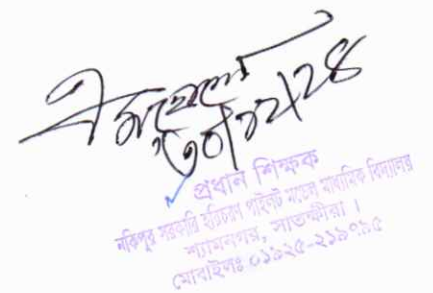 ৩০/১২/২৪
প্রধান শিক্ষক
নকিপুর সরকারি হরিচরণ পাইলট মডেল মাধ্যমিক বিদ্যালয়
শ্যামনগর, সাতক্ষীরা ।
মোবাইলঃ ০১৯২৫-২১৯০৯৫